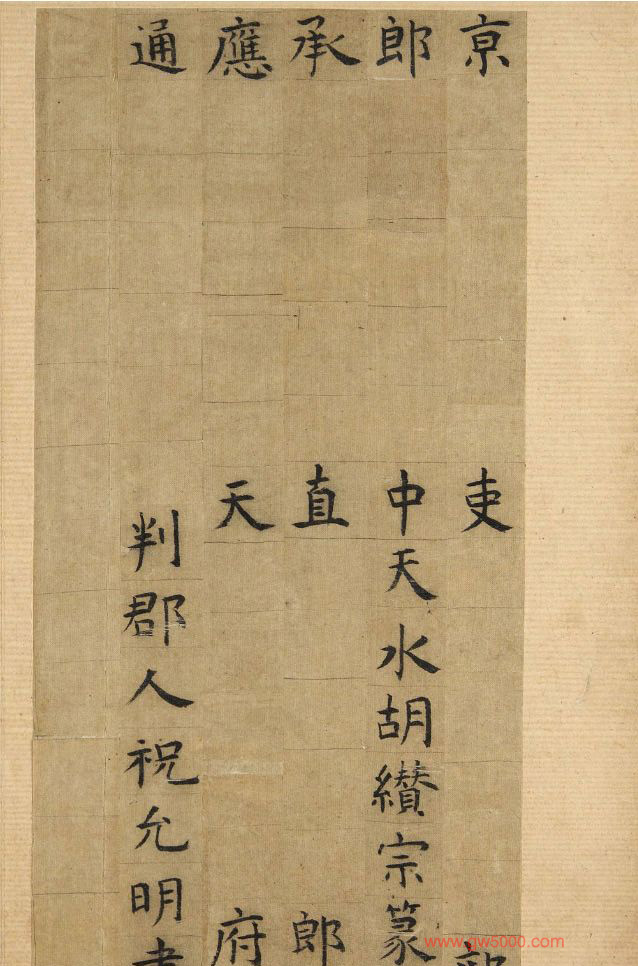 京吏
郎中天水胡纘宗篆
承直郎
應天府
通判郡人祝允明書
www.gw5000.com